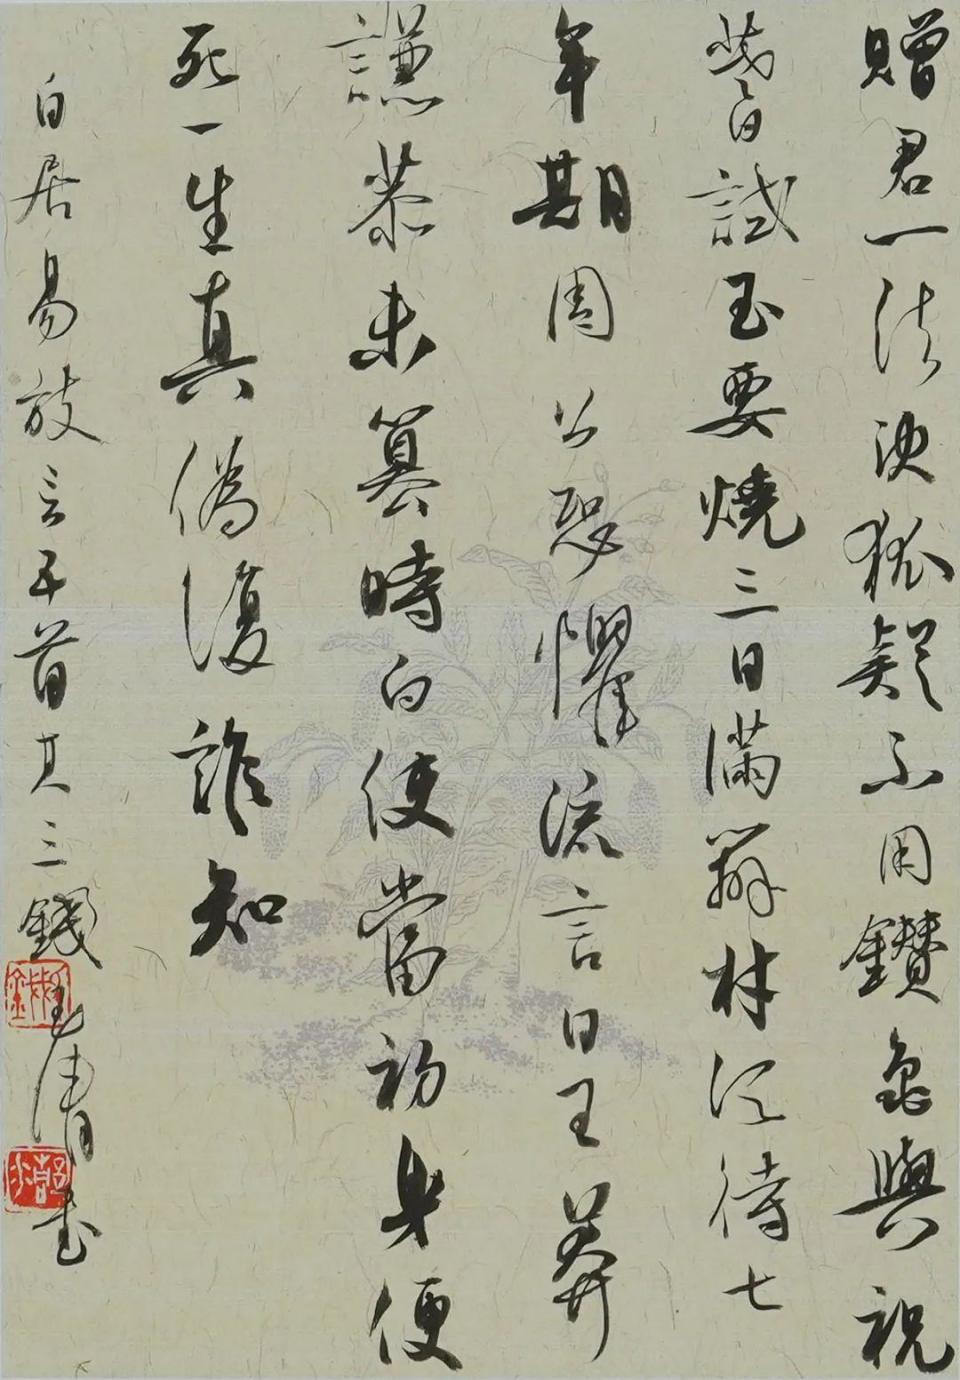 贈君一法決狐疑不用鑽龜與祝
蓍試玉要燒三日滿辨材須待七
年期周公恐懼流言日王莽
謙恭未篡時向使當初身便
死一生真偽復誰知
白居易放言五首其三錢玉清書